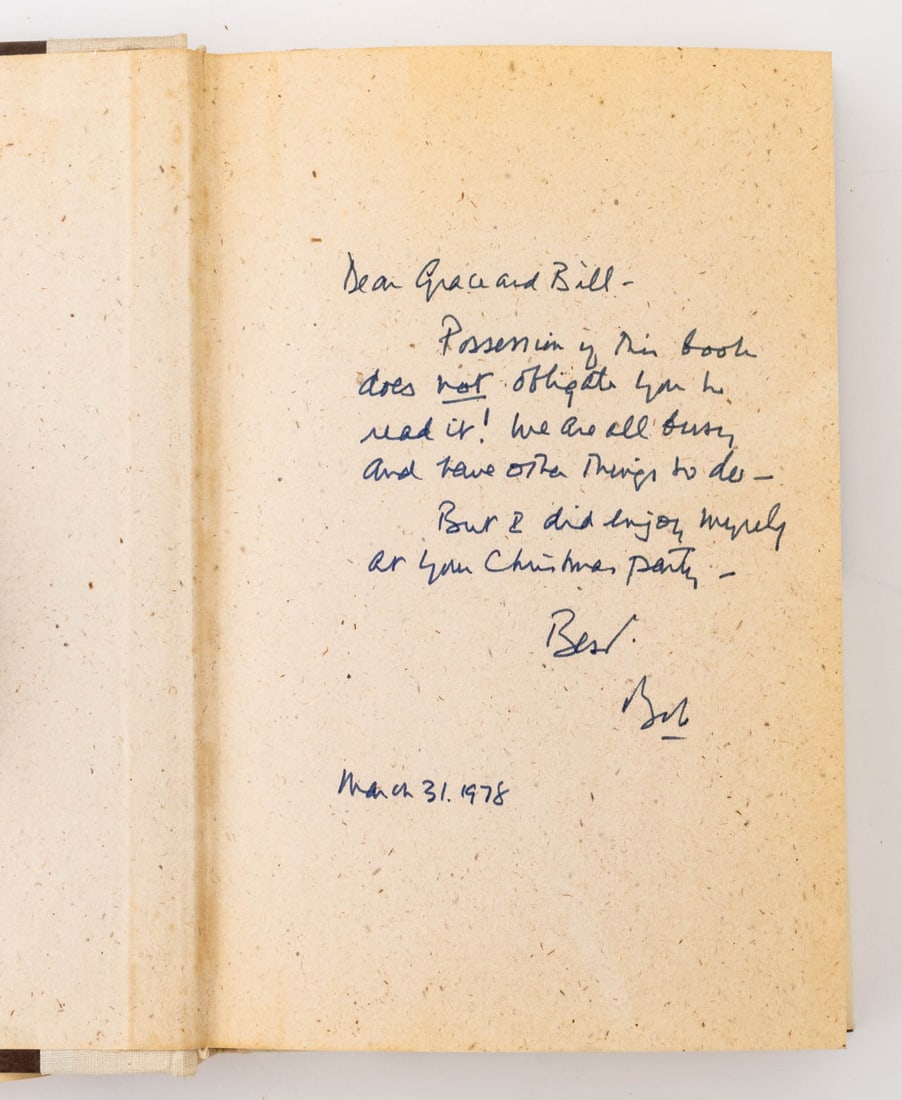 Dear Grace and Bill -
Possession of this book
does not obligate you to
read it! We are all busy
and have other things to do -
But I did enjoy myself
at your Christmas party -
Best.
Bob
March 31. 1978